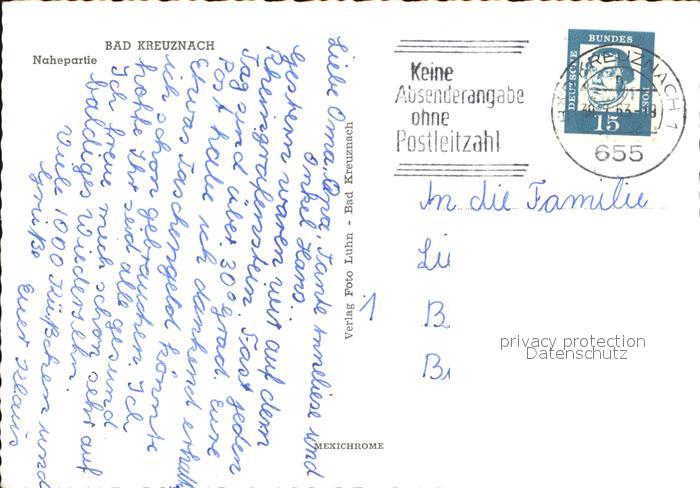 BAD KREUZNACH
Nahepartie
Liebe Oma, Opa, Tante Anneliese und
Onkel Hans.
Gestern waren wir auf dem
Rheingrafenstein. Fast jeden
Tag sind über 30° grad. Eure
Post habe ich dankend erhalt
Etwas Taschengeld könnte
ich schon gebrauchen. Ich
hoffe Ihr seid alle gesund
Ich freue mich schon sehr auf
baldiges Wiedersehn.
Viele 1000 Küßchen und
Grüße
Euer Klaus
Verlag Foto Luhn - Bad Kreuznach
1
MEXICHROME
Keine
Absenderangabe
ohne
Postleitzahl
DEUTSCHE
BUNDES
POST
15
KREUZNACH 1
655
An die Familie
Lü
B
Br
privacy protection
Datenschutz